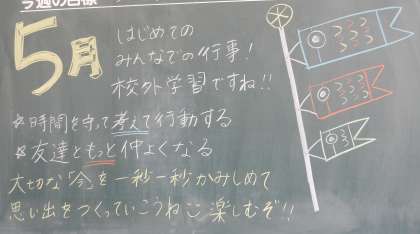 今週の目標
5月
はじめての
みんなでの行事!
校外学習ですね!!
☆時間を守って考えて行動する
☆友達ともっと仲よくなる
大切な「今」を一秒一秒かみしめて
思い出をつくっていこうね 楽しむぞ!!